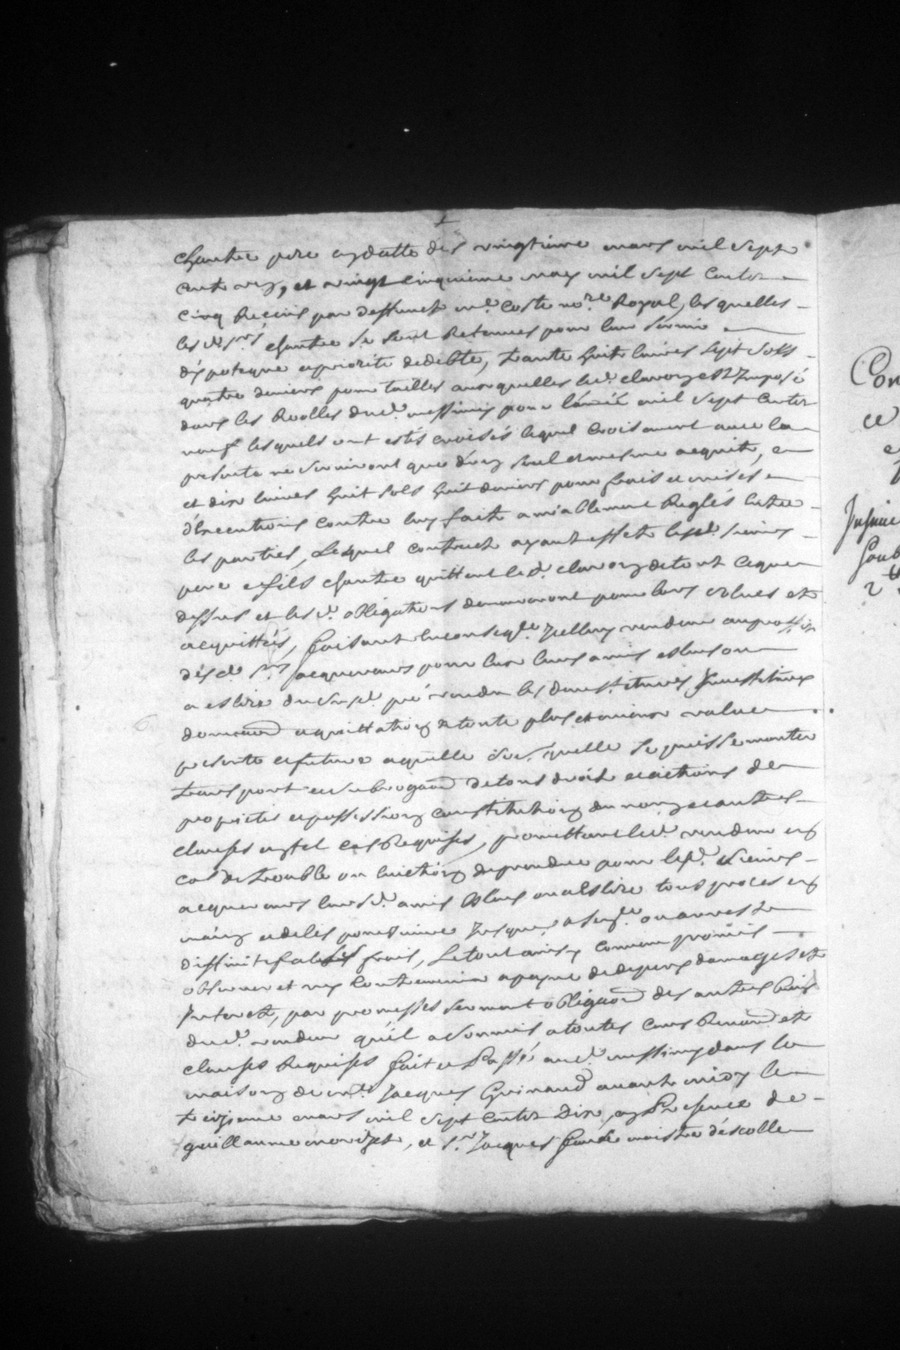 chantre pere en datte des vingtieme mars mil sept
cents un, et vingt cinquieme may mil sept cents
cinq Receus par deffunct me. Coste nore. Royal, lesquelles
les d. srs chantre se sont Retenues pour leur servir
d'ypoteque et priorité de debte, trante huit livres sept sols
quatre deniers pour tailles auxquelles led. clavoz est Imposé
dans les Roolles dud. messimy pour l'année mil sept cents
neuf lesquels ont estés croisés lequel croisement avec la
presente ne serviront que d'un seul et mesme acquit, en
et dix livres huit sols huit deniers pour frais et mises
d'executions contre luy fait amiablement Reglés entre
les parties, Lequel contract ayant effect lesd. sieurs
pere et fils chantre quittent led. clavoz de tout ce que
dessus et les d. obligations demeureront pour leurs values et
acquittées, faisant en conseqce. Icelluy vendeur au proffit
des d. srs acquereurs pour leur leurs amis eslus ou
a eslire dud. prés vendu les devest. etures Investitures
demandes acquittations de toute plus et moins value
presente et future a quelle somme quelle se puisse monter
transport et subrogaon de tous droits et actions de
proprietes et possession constitution du nom et autres
clauses en tel cas Requises, promettant led. vendeur en
cas de trouble ou eviction de prendre pour lesd. sieurs
acquereurs leursd. amis eslus ou a eslire tous proces en
main et de les poursuivre Jusques a sence. ou arrest
diffinitif a ses frais, Le tout ainsy convenu promis
observer et n'y contrevenir a payne de depens damages et
Interets, par promesses serment obligaon des autres biens
dud. vendeur qu'il a soumis a toutes cours Renon et
clauses Requises fait et Passé aud. messimy dans la
maison de me. Jacques Guinaud avant midy le
treizieme mars mil sept cents Dix, en Presence de
guillaume morizet, et sr. Jacques faure maistre d'escolle